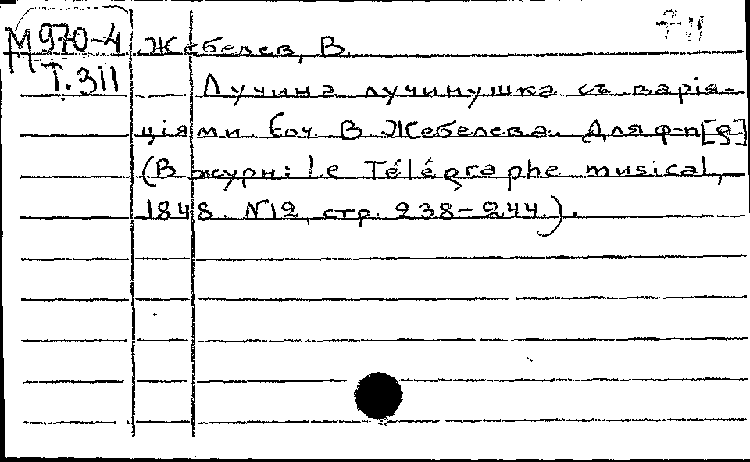 М970-4 Жебелев, В.
Т.311 Лучина лучинушка съ варіа-
ціями. Соч. В. Жебелева. Для ф-п[о]
(В журн: Le Télégraphe musical,
1848. №12, стр. 238-244.).